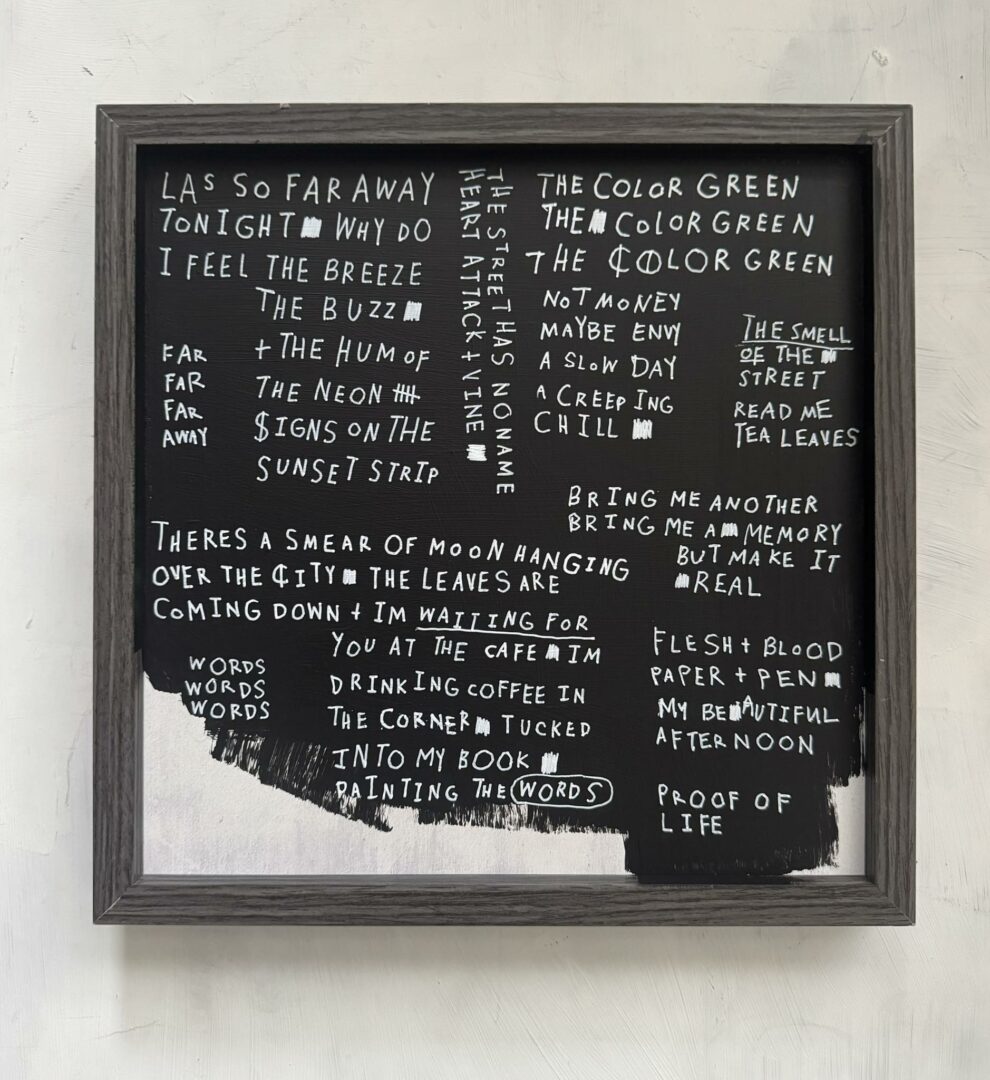 LAS SO FAR AWAY
TONIGHT WHY DO
I FEEL THE BREEZE
THE BUZZ
+ THE HUM OF
THE NEON
$IGNS ON THE
SUNSET STRIP
FAR
FAR
FAR
AWAY
THE STREET HAS NO NAME
HEART ATTACK + VINE
THE COLOR GREEN
THE COLOR GREEN
THE ₵OLOR GREEN
NOT MONEY
MAYBE ENVY
A SLOW DAY
A CREEPING
CHILL
THE SMELL
OF THE
STREET
READ ME
TEA LEAVES
BRING ME ANOTHER
BRING ME A MEMORY
BUT MAKE IT
REAL
THERES A SMEAR OF MOON HANGING
OVER THE ₵ITY THE LEAVES ARE
COMING DOWN + IM WAITING FOR
YOU AT THE CAFE IM
DRINKING COFFEE IN
THE CORNER TUCKED
INTO MY BOOK
PAINTING THE WORDS
WORDS
WORDS
WORDS
FLESH + BLOOD
PAPER + PEN
MY BEAUTIFUL
AFTERNOON
PROOF OF
LIFE